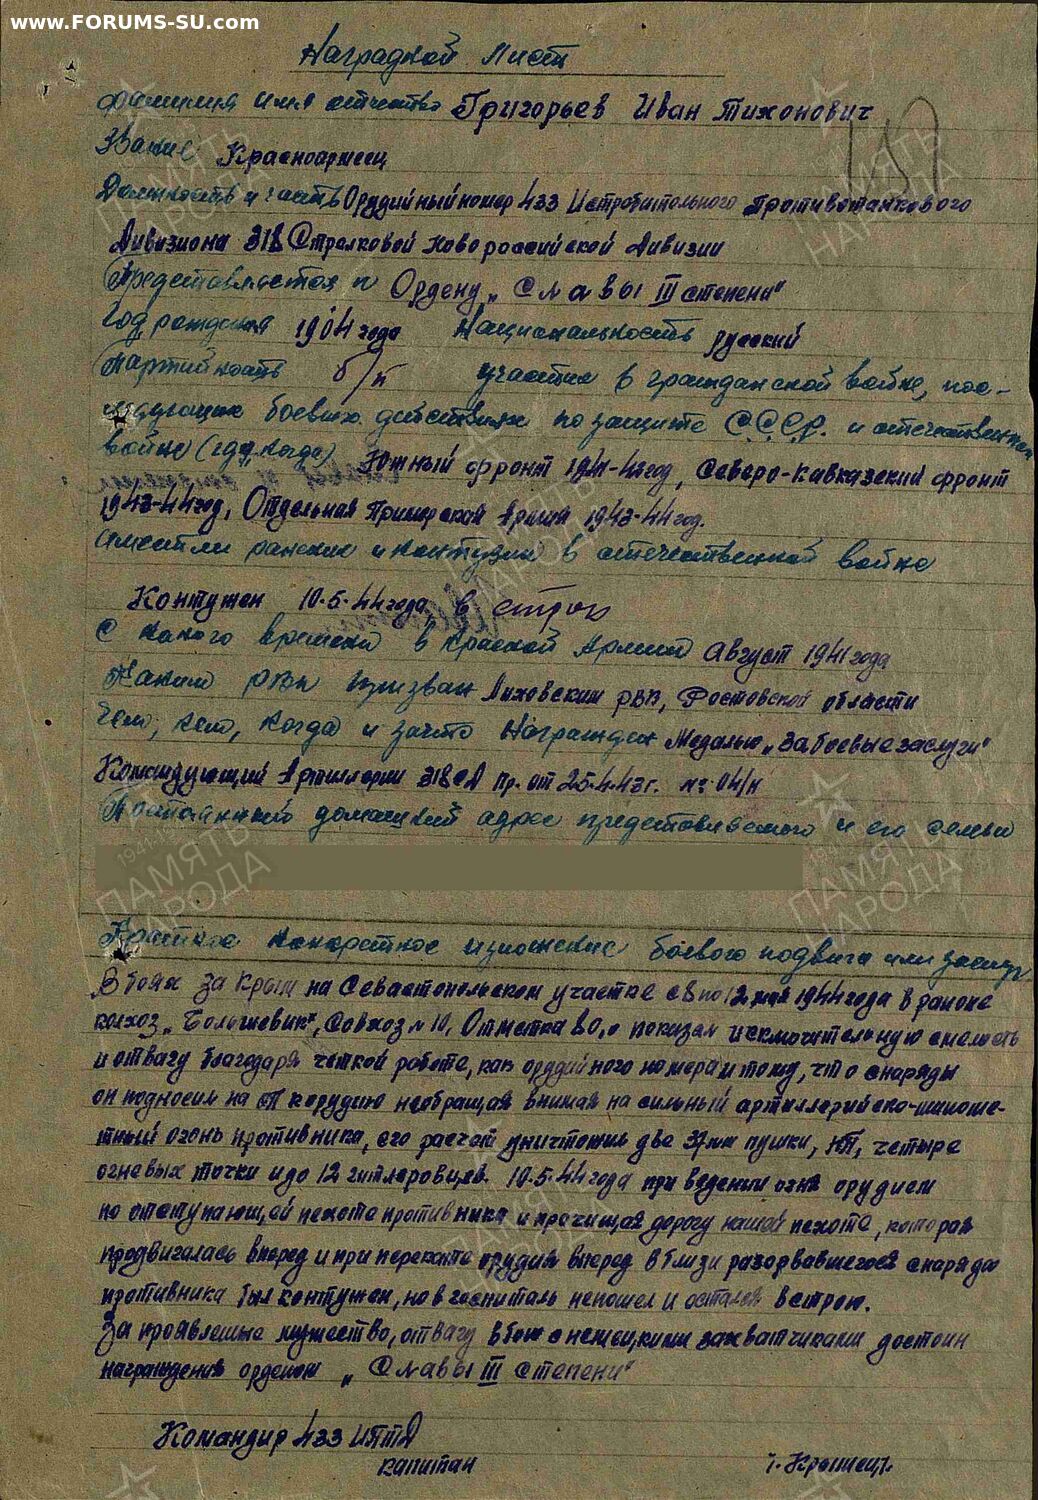 www.FORUMS-SU.com
Наградной Лист
Фамилия имя отчество Григорьев Иван Тихонович
Звание Красноармеец
Должность и часть Орудийный номер 433 Истребительного Противотанкового
Дивизиона 318 Стрелковой Новороссийской Дивизии
Представляется к Ордену „Славы III степени"
Год рождения 1904 года Национальность русский
Партийность б/п участие в гражданской войне, пос-
ледующих боевых действиях по защите С.С.С.Р. и отечественной
войне (где, когда) Южный фронт 1941-42 год, Северо-Кавказский фронт
1943-44 год, Отдельная Приморской Армии 1943-44 год.
Имеет ли ранение и контузии в отечественной войне
Контужен 10.5.44 года в строю
С какого времени в Красной Армии Август 1941 года
Каким РВК призван Лиховским РВК, Ростовской области
Чем, кем, когда и за что Награжден Медалью „За боевые заслуги"
Командующий Артиллерии 318 СД пр. от 25.4.43 г. № 04/н
Постоянный домашний адрес представляемого и его семьи
Краткое конкретное изложение боевого подвига или заслуг
В боях за Крым на Севастопольском участке с 8 по 12 мая 1944 года в районе
колхоз „Большевик", Совхоз №10, Отметка 80,0 показал исключительную смелость
и отвагу благодаря четкой работе, как орудийного номера и тому, что снаряды
он подносил на ОП к орудию необращая внимая на сильный артиллерийско-миноме-
тный огонь противника, его расчет уничтожил две 37 мм пушки, НП, четыре
огневых точки и до 12 гитлеровцев. 10.5.44 года при ведении огня орудием
по отступающей пехоте противника и прочищая дорогу нашей пехоте, которая
продвигалась вперед и при перекате орудия вперед вблизи разорвавшегося снаряда
противника был контужен, но в госпиталь непошел и остался встрою.
За проявленные мужество, отвагу в бою с немецкими захватчиками достоин
награждения орденом „Славы III степени"
Командир 433 ИПТД
капитан